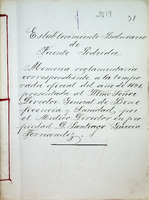 2819 31
Establecimiento Balneario
de
Fuente Podrida
Memoria reglamentaria
correspondiente a la tempo-
rada oficial del año de
presentada al Ilmo Señor
Director General de Bene-
ficencia y Sanidad, por
el Médico Director en pro-
piedad D. Santiago García
Fernandez